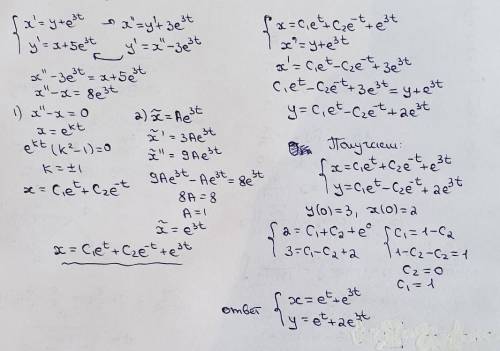 { x' = y + e^{3t} ⇒ x'' = y' + 3e^{3t}
{ y' = x + 5e^{3t} y' = x'' - 3e^{3t}
x'' - 3e^{3t} = x + 5e^{3t}
x'' - x = 8e^{3t}
1) x'' - x = 0
x = e^{kt}
e^{kt}(k² - 1) = 0
k = ±1
x = C₁e^t + C₂e^{-t}
2) x̃ = Ae^{3t}
x̃' = 3Ae^{3t}
x̃'' = 9Ae^{3t}
9Ae^{3t} - Ae^{3t} = 8e^{3t}
8A = 8
A = 1
x̃ = e^{3t}
x = C₁e^t + C₂e^{-t} + e^{3t}
{ x = C₁e^t + C₂e^{-t} + e^{3t}
{ x' = y + e^{3t}
x' = C₁e^t - C₂e^{-t} + 3e^{3t}
C₁e^t - C₂e^{-t} + 3e^{3t} = y + e^{3t}
y = C₁e^t - C₂e^{-t} + 2e^{3t}
Получаем:
{ x = C₁e^t + C₂e^{-t} + e^{3t}
{ y = C₁e^t - C₂e^{-t} + 2e^{3t}
y(0) = 3, x(0) = 2
{ 2 = C₁ + C₂ + e⁰ { C₁ = 1 - C₂
{ 3 = C₁ - C₂ + 2 { 1 - C₂ - C₂ = 1
C₂ = 0
C₁ = 1
ответ { x = e^t + e^{3t}
{ y = e^t + 2e^{3t}